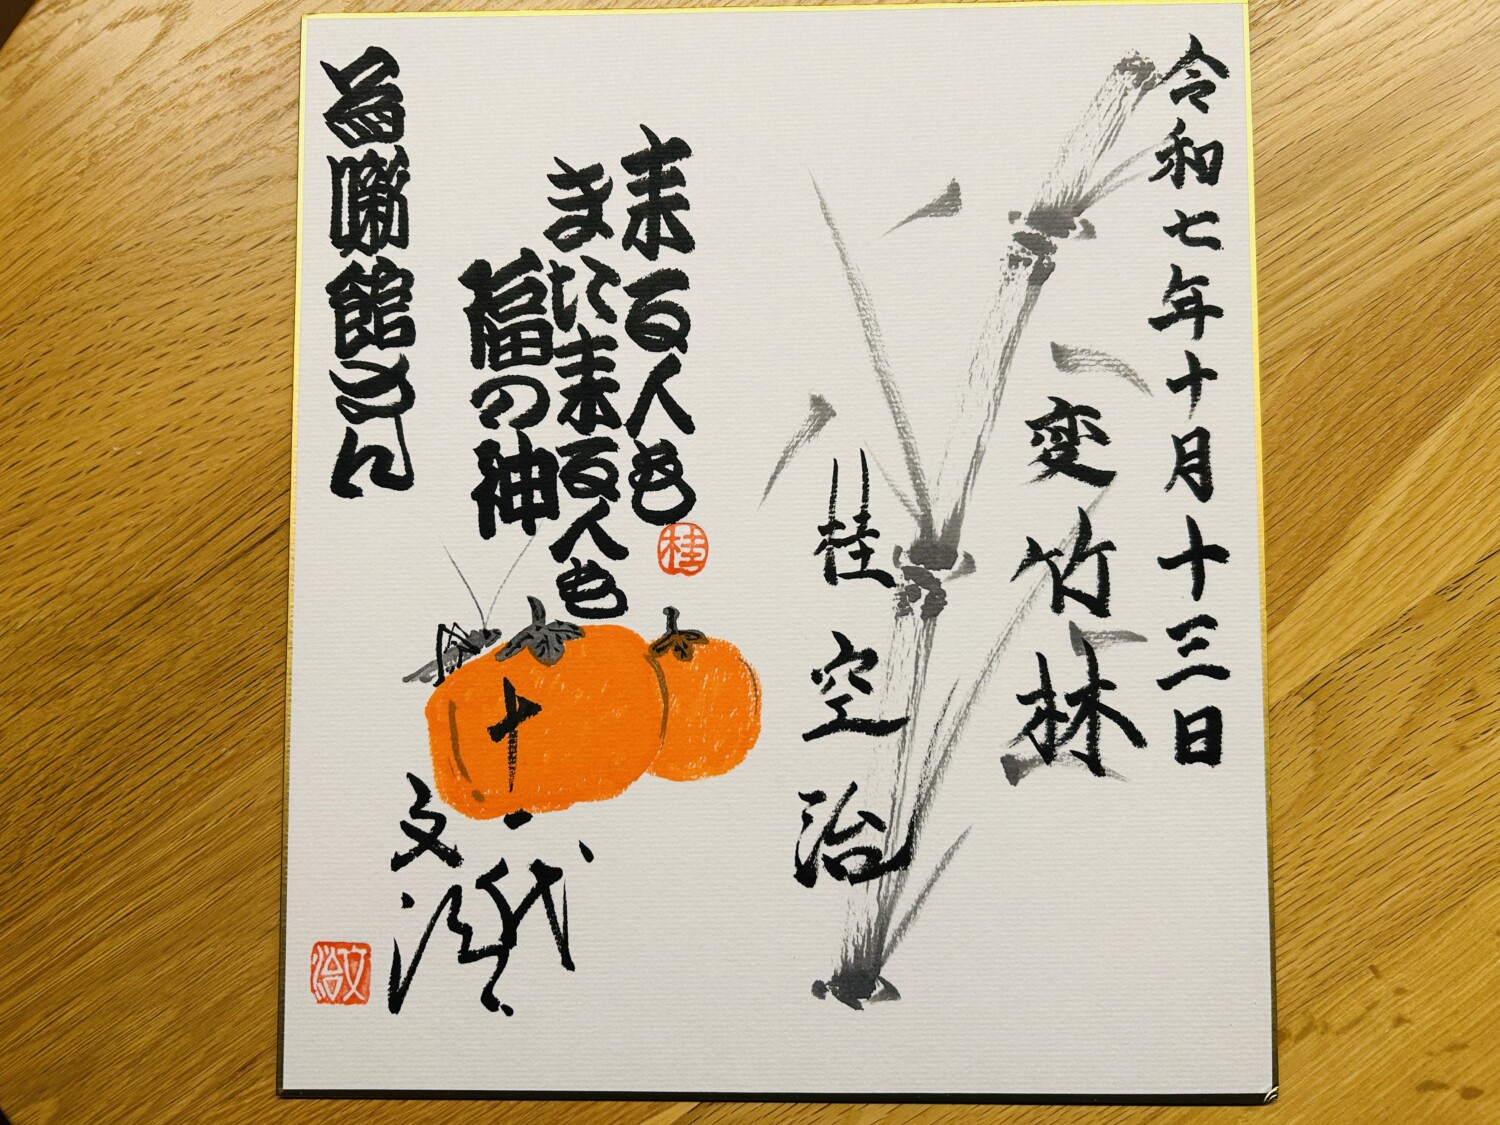 令和七年十月十三日
変竹林
桂空治
来る人も
また来る人も
福の神
桂
十一代
文治
為噺館さん
文治